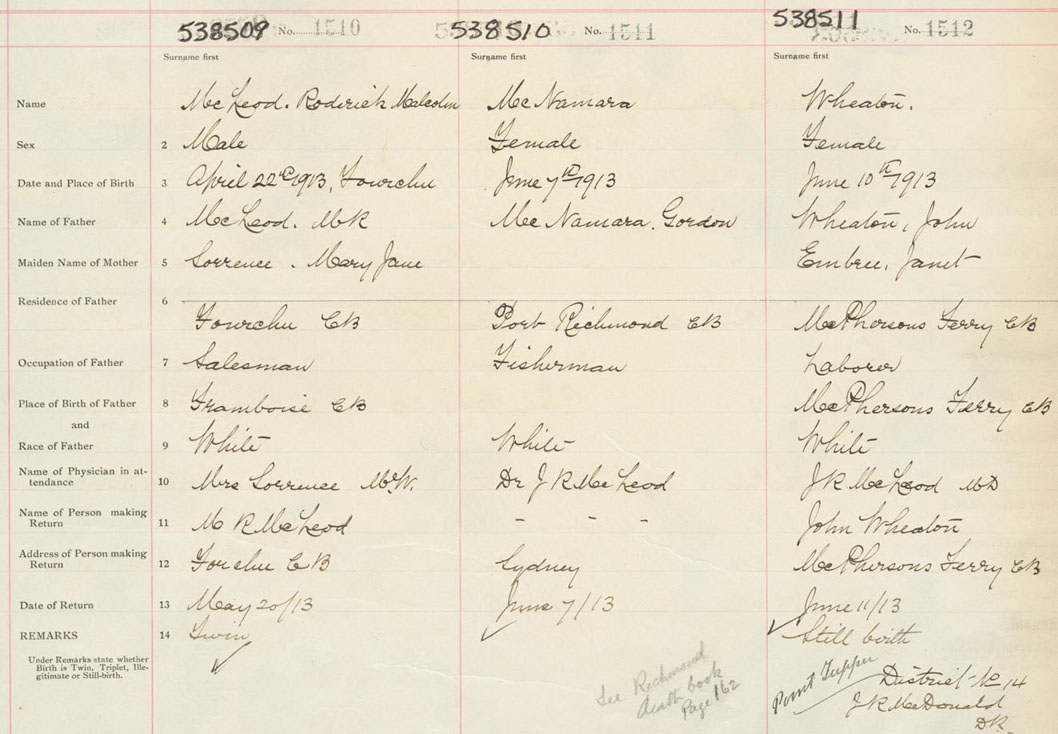 538509 No. 1510 538510 No. 1511 538511 No. 1512
Surname first Surname first Surname first
Name McLeod. Roderick Malcolm McNamara Wheaton.
Sex 2 Male Female Female
Date and Place of Birth 3 April 22nd 1913, Fourchu June 7th 1913 June 10th 1913
Name of Father 4 McLeod. M K McNamara. Gordon Wheaton, John
Maiden Name of Mother 5 Lorrence. Mary Jane Embree, Janet
Residence of Father 6
Fourchu CB Port Richmond CB McPhersons Ferry CB
Occupation of Father 7 Salesman Fisherman Laborer
Place of Birth of Father 8 Framboise CB McPhersons Ferry CB
and
Race of Father 9 White White White
Name of Physician in at-
tendance 10 Mrs Lorrence M.W. Dr J K McLeod J K McLeod MD
Name of Person making
Return 11 M K McLeod - - - John Wheaton
Address of Person making
Return 12 Forchu CB Sydney McPhersons Ferry CB
Date of Return 13 May 20/13 June 7/13 June 11/13
REMARKS 14 Twin Still birth
Under Remarks state whether
Birth is Twin, Triplet, Ille-
gitimate or Still-birth.
See Richmond
death book
Page 162
Point Tupper
District No 14
J K McDonald
DR.